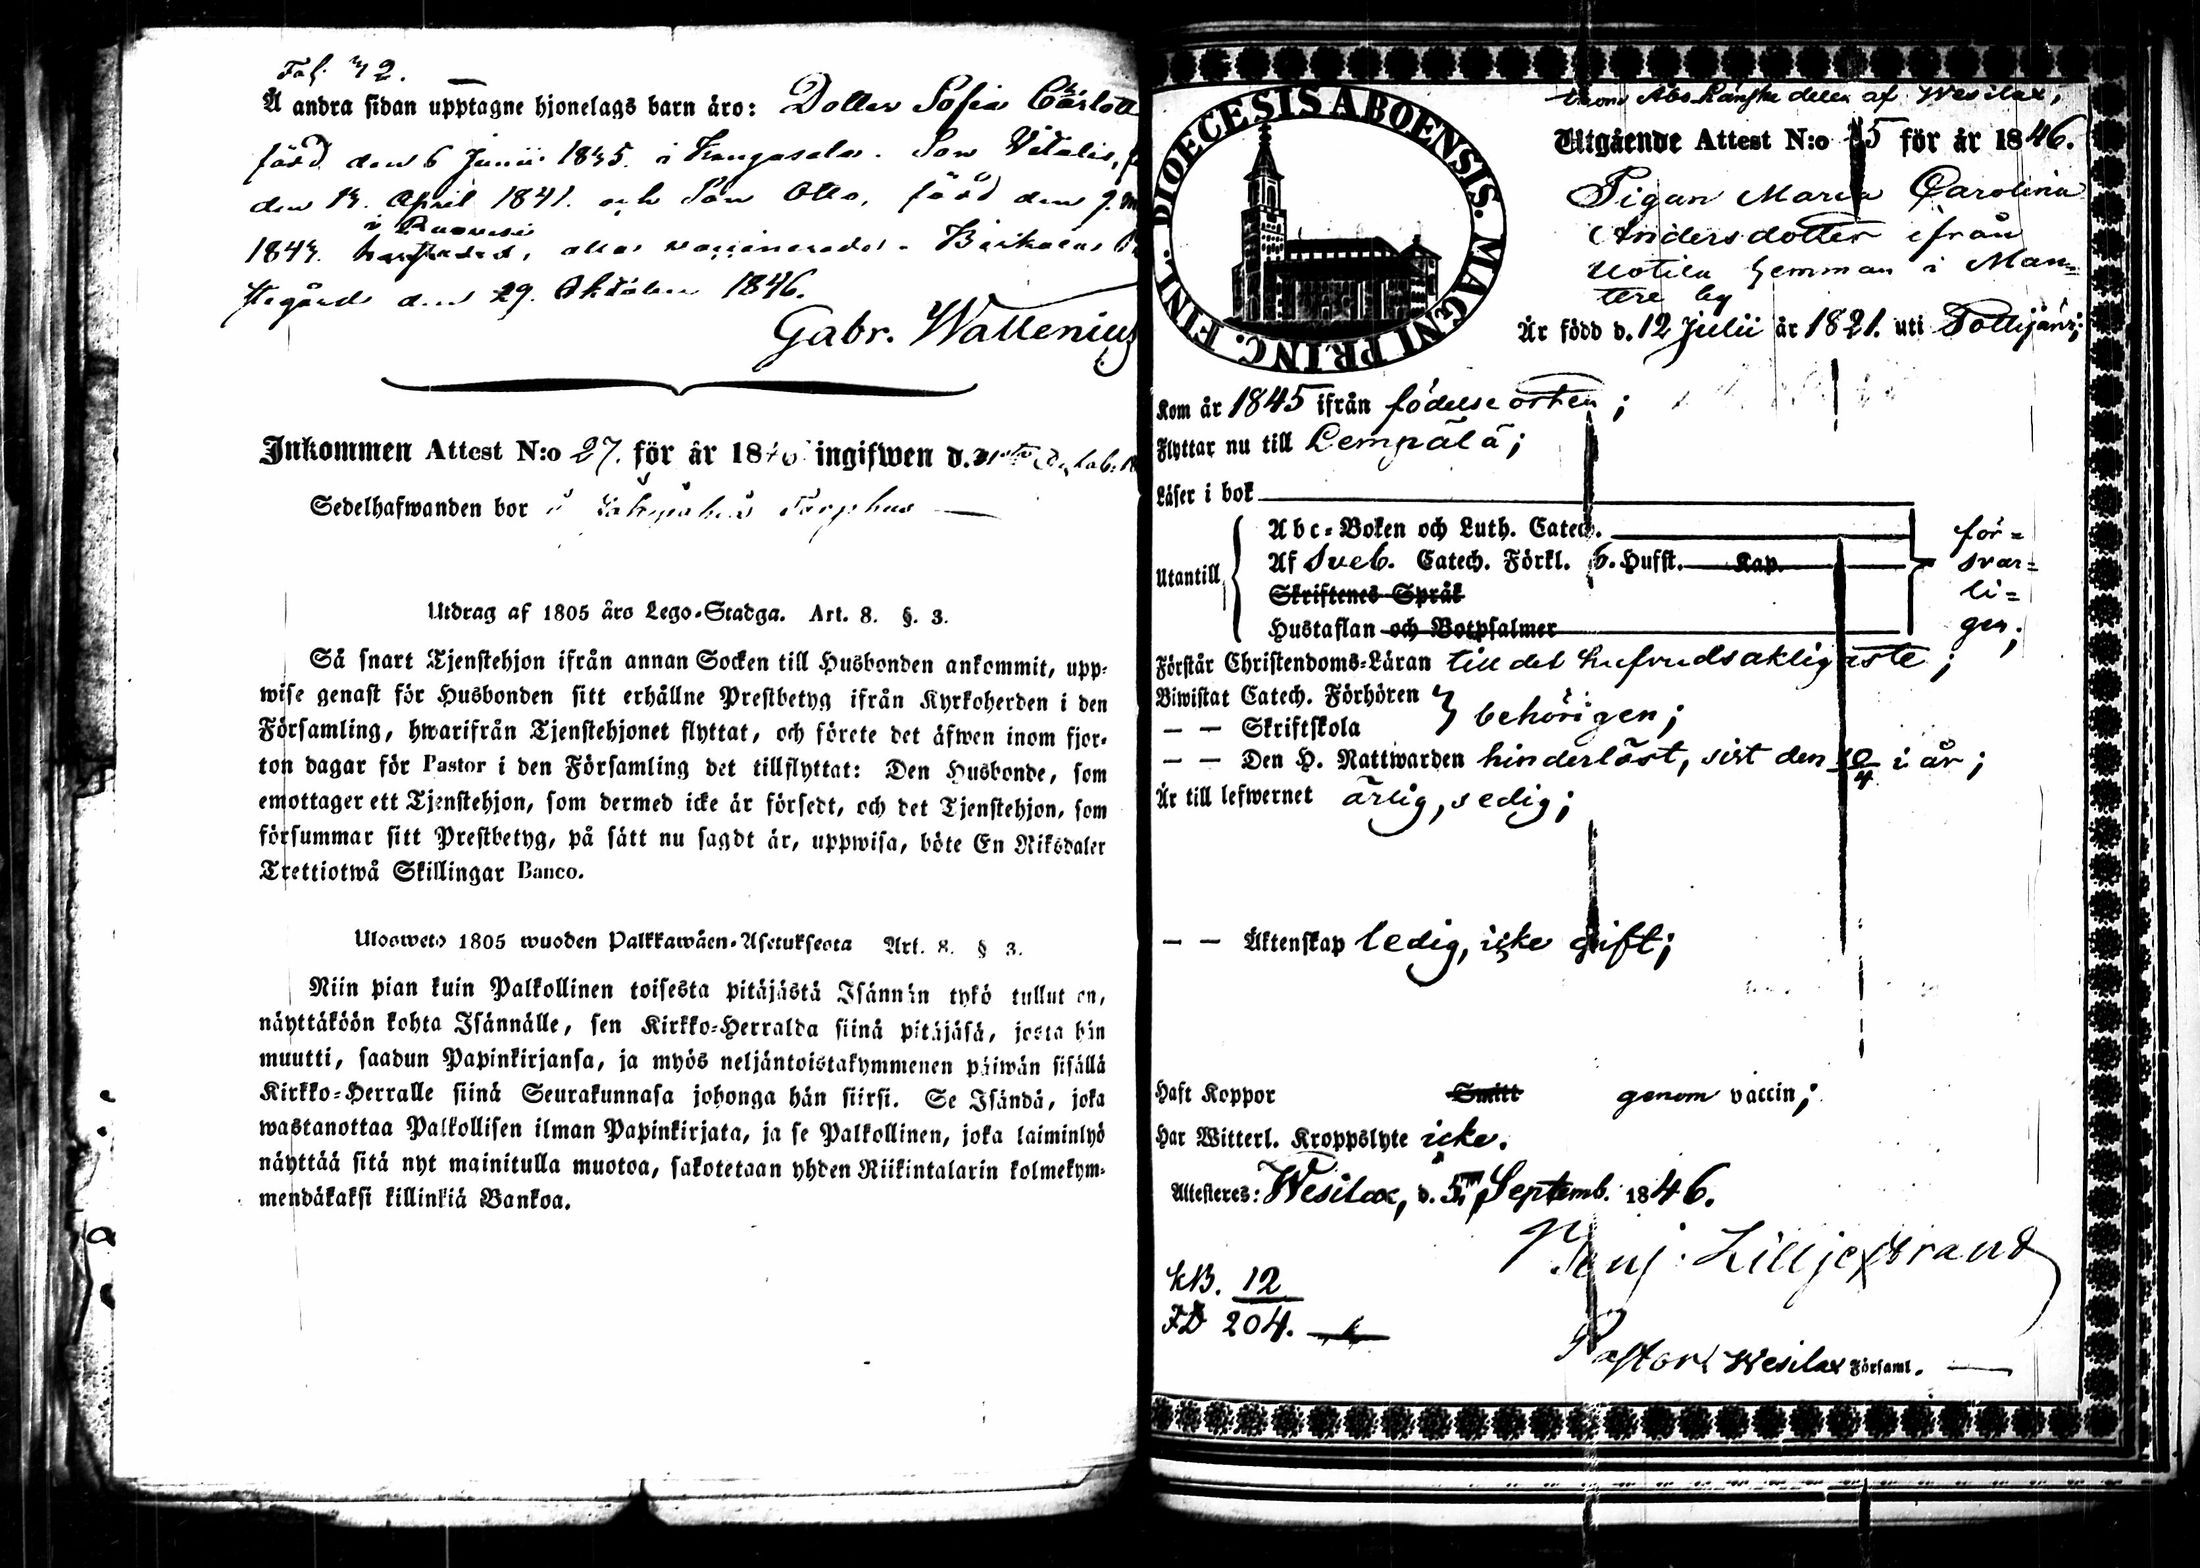 Fol. 42.
Å andra sidan upptagne hjonelags barn äro: Dotter Sofia Carlott
född den 6 Junii 1835. i Kangasala. Son Vitalis,
den 13. April 1841. och Son Otto, född den 9.
i Ruovesi
1843. alla vaccinerade. Birkala
den 29. Oktober 1846.
Gabr. Wallenius
Inkommen Attest N:o 27. för år 1846 ingifwen d.
Sedelhafwanden bor
Utdrag af 1805 års Lego-Stadga. Art. 8. §. 3.
Så snart Tjenstehjon ifrån annan Socken till Husbonden ankommit, upp-
wise genast för Husbonden sitt erhållne Prestbetyg ifrån Kyrkoherden i den
Församling, hwarifrån Tjenstehjonet flyttat, och förete det äfwen inom fjor-
ton dagar för Pastor i den Församling det tillflyttat: Den Husbonde, som
emottager ett Tjenstehjon, som dermed icke är försedt, och det Tjenstehjon, som
försummar sitt Prestbetyg, på sätt nu sagdt är, uppwisa, böte En Riksdaler
Trettiotwå Skillingar Banco.
Ulosweto 1805 wuoden Palkkawäen-Asetuksesta Art. 8. § 3.
Niin pian kuin Palkollinen toisesta pitäjästä Isännän tykö tullut on,
näyttäköön kohta Isännälle, sen Kirkko-Herralda siinä pitäjäsä, josta hän
muutti, saadun Papinkirjansa, ja myös neljäntoistakymmenen päiwän sisällä
Kirkko-Herralle siinä Seurakunnasa johonga hän siirsi. Se Isändä, joka
wastanottaa Palkollisen ilman Papinkirjata, ja se Palkollinen, joka laiminlyö
näyttää sitä nyt mainitulla muotoa, sakotetaan yhden Riikintalarin kolmekym-
mendäkaksi killinkiä Bankoa.
DIOECESIS ABOENSIS. MAGNI PRINC. FINL.
från Åbo Länske delen af Wesilax;
Utgående Attest N:o 25 för år 1846.
Pigan Maria Carolina
Andersdotter ifrån
Uotila hemman i Man-
tere by
Är född d. 12 Julii år 1821. uti Tottijärvi;
Kom år 1845 ifrån födelseorten;
Flyttar nu till Lempälä;
Läser i bok
Abc-Boken och Luth. Catech.
Utantill Af Sveb. Catech. Förkl. 6. Hufst. Kap.
Skriftenes Språk
Hustaflan och Botpsalmer
för-
svar-
li-
gen;
Förstår Christendoms-Läran till det hufvudsakligaste;
Biwistat Catech. Förhören
— — Skriftskola behörigen;
— — Den H. Nattwarden hinderlöst, sist den 10/4 i år;
Är till lefwernet ärlig, sedig;
— — Äktenskap ledig, icke gift;
Haft Koppor Smitt genom vaccin;
Har Witterl. Kroppslyte icke.
Attesteres: Wesilax, d. 5 Septemb. 1846.
Benj. Lilljestrand
KB. 12
FD 204.
Pastor i Wesilax Församl.